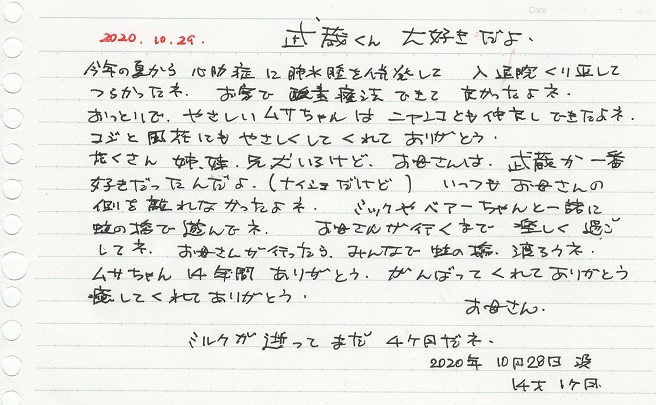 Date
2020.10.29. 武蔵くん 大好きだよ.
今年の夏から 心肺症に肺水腫を併発して 入退院くり返して
つらかったネ. お家で 酸素療法 できて 良かったよネ.
おっとりで、やさしいムサちゃんは ニャンコとも仲良しできたよネ.
コジと風花にもやさしくしてくれて ありがとう.
たくさん 姉、妹、兄犬いるけど、お母さんは、武蔵が一番
好きだったんだよ.(ナイショだけど) いつも お母さんの
側を離れなかったよネ. ミックやベアーちゃんと一緒に
虹の橋で遊んでネ. お母さんが行くまで 楽しく 過ご
してネ. お母さんが行ったら、みんなで 虹の橋、渡ろうネ.
ムサちゃん 14年間 ありがとう. がんばってくれてありがとう
癒してくれてありがとう.
お母さん.
ミルクが逝って まだ 4ヶ月だネ.
2020年 10月28日 没
14才 1ヶ月.